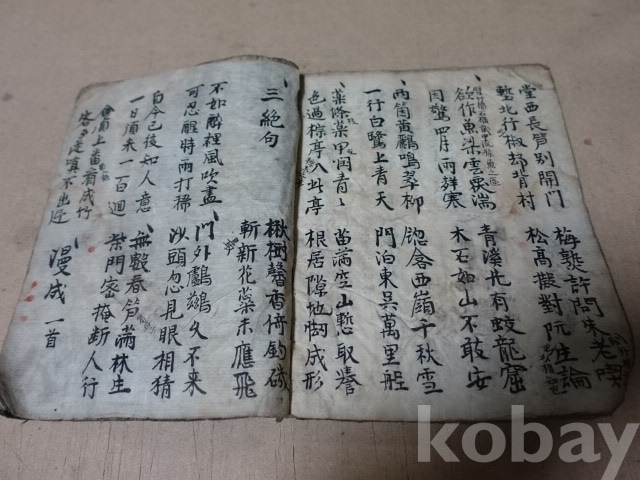 堂西長笋別開門 梅熟許問朱老喫
塹北行椒却背村 松高擬對阮生論
欲作魚梁雲覆湍 青溪先有蛟龍窟
因驚四月雨聲寒 木石如山不敢安
兩箇黃鸝鳴翠柳 窓含西嶺千秋雪
一行白鷺上青天 門泊東吳萬里船
藥條藥甲潤青〻 苗滿空山慙取譽
色過棕亭入草亭 根居隙地㥘成形
三絕句 楸樹馨香倚釣磯
斬新花蘂未應飛
不如醉裡風吹盡 門外鸕鶿久不来
可忍醒時雨打稀 沙頭忽見眼相猜
自今已後知人意 無數春笋滿林生
一日須来一百迴 柴門密掩斷人行
會須上番看成竹
客至從嗔不出迎 漫成一首
kobay